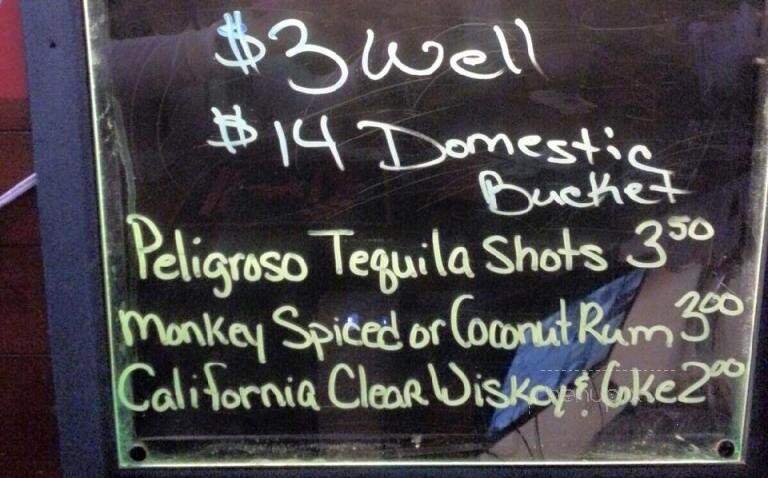 $3 Well
$14 Domestic
Bucket
Peligroso Tequila Shots 3⁵⁰
Monkey Spiced or Coconut Rum 3⁰⁰
California Clear Wiskey & Coke 2⁰⁰